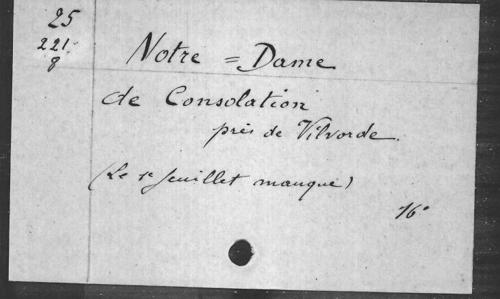 25
221
8
Notre = Dame
de Consolation
près de Vilvorde.
(Le 1r feuillet manque)
16°